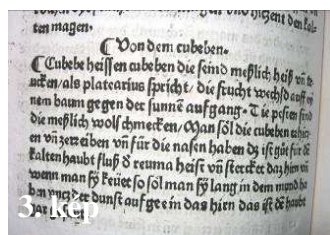 den kal-
ten magen.
¶ Von dem cubeben.
¶ Cubebe heissen cubeben die seind meßlich heiß vñ tr
ucken/als platearius spricht/ die frucht wechßt auff
nem baum gegen der sunnē auf gang.
die meßlich wol schmecken/ Man sol die cubeben
en vñ zerreiben vñ für die nasen haben dz ist gůt für dē
kalten haubt fluß ď reuma heist vñ stercket daz hirn vñ
wenn man sy keüet so sol man sy lang in dem mund ha
ben dunst auf gee in das hirn das ist dē haubt
3. kép